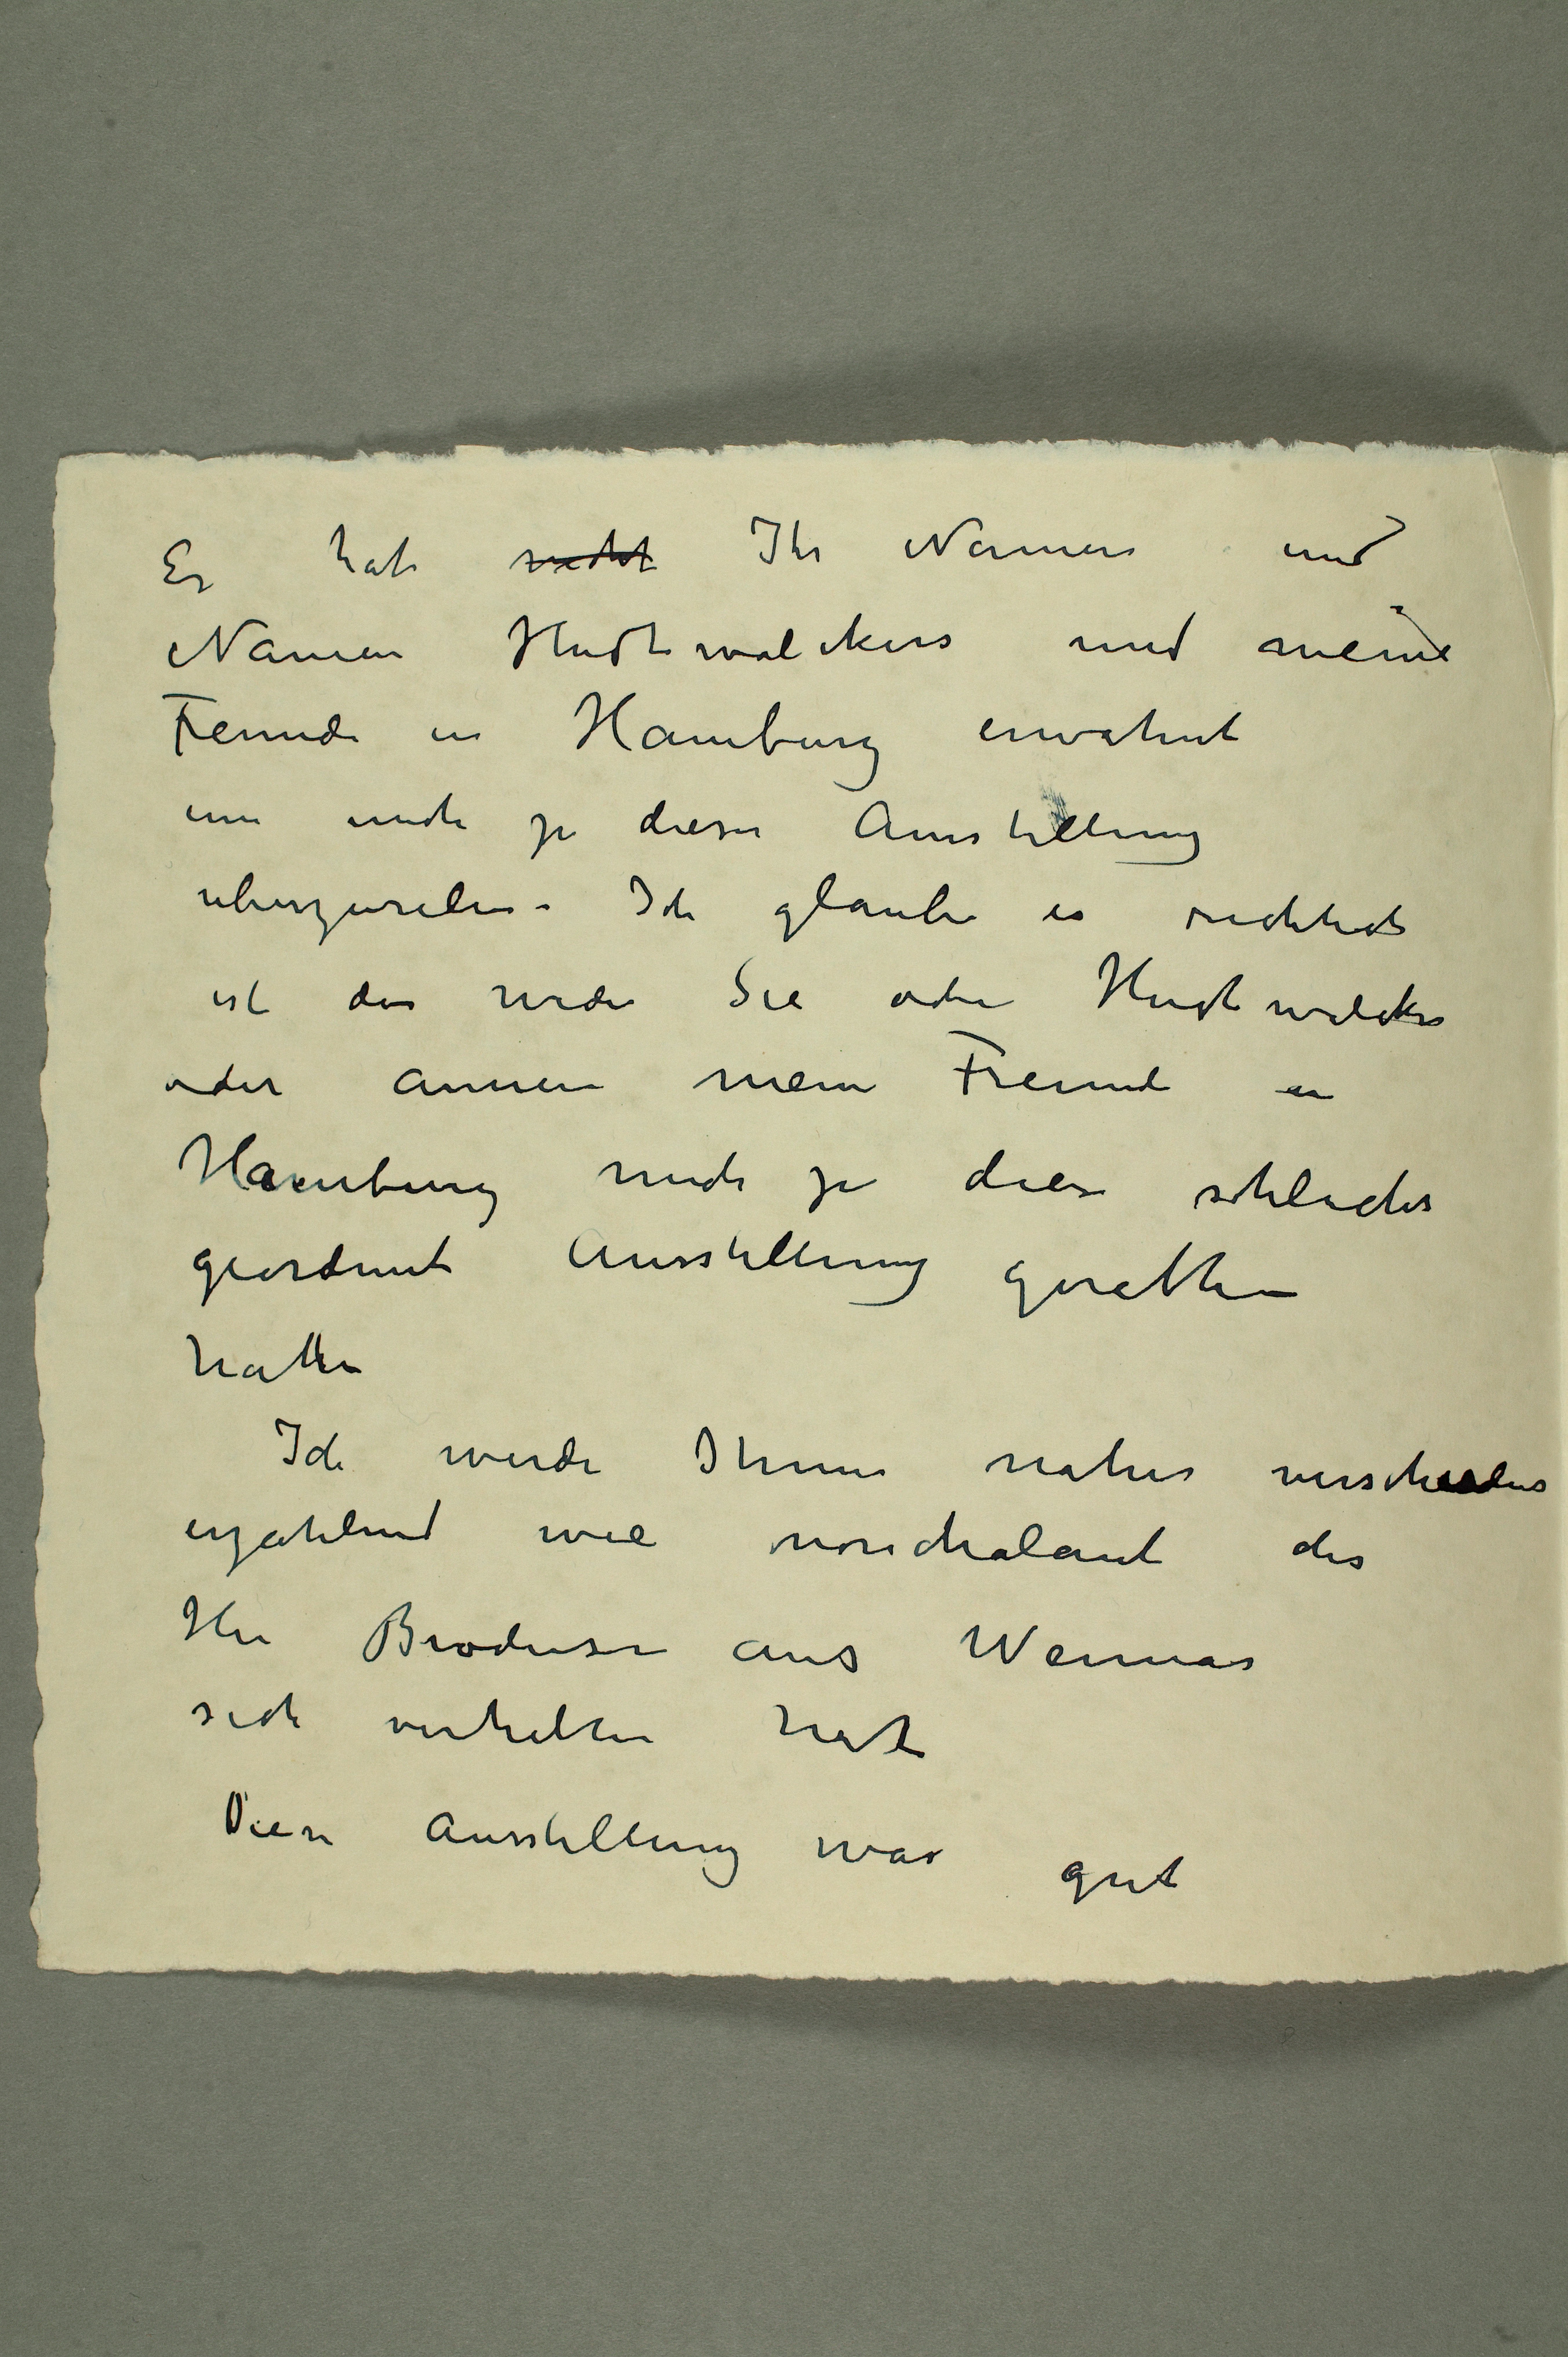 Er hat nicht Ihr Namen und
Namen Hudtwalckers und meine
Freunde in Hamburg erwähnt
um mich zu dieser Ausstellung
überzureden. Ich glaube es
ist das weder Sie oder Hudtwalcker
oder annen meine Freunde in
Hamburg mich zu diese schlecht
geordnete Ausstellung gerathen
hatte
Ich werde Ihnen näher verschiedenes
erzählend wie nonchalant der
Herr Brodersen aus Weimar
sich verhalten hat
Diese Ausstellung war gut